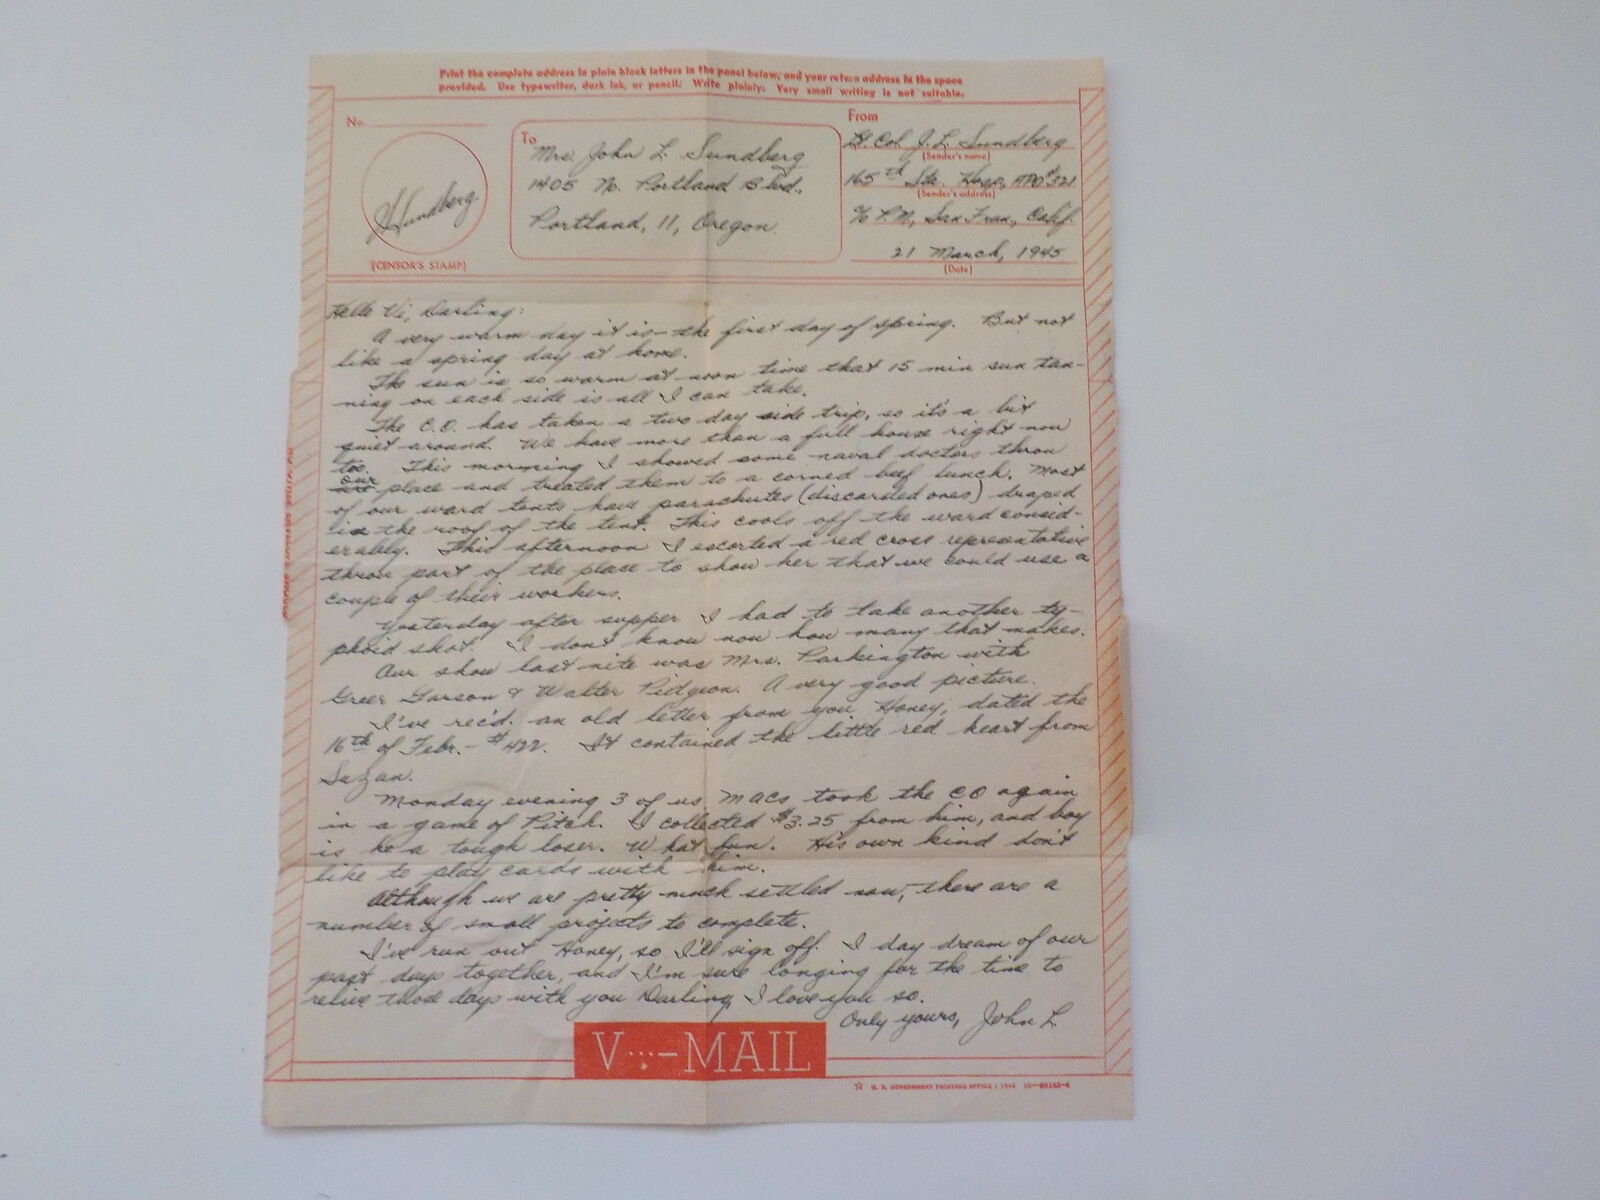 Print the complete address in plain block letters in the panel below, and your return address in the space
provided. Use typewriter, dark ink, or pencil. Write plainly. Very small writing is not suitable.
No.
J L Sundberg
(CENSOR'S STAMP)
To
Mrs. John L. Sundberg
1405 No. Portland Blvd.
Portland, 11, Oregon
From
Lt. Col. J. L. Sundberg
(Sender's name)
165th Sta. Hosp, APO #321
(Sender's address)
c/o P.M., San Fran., Calif.
21 March, 1945
(Date)
Hello Vi, Darling:
A very warm day it is - the first day of spring. But not
like a spring day at home.
The sun is so warm at noon time that 15 min sun tan-
ning on each side is all I can take.
The C.O. has taken a two day side trip, so it's a bit
quiet around. We have more than a full house right now
too. This morning I showed some naval doctors throu
our place and treated them to a corned beef lunch. Most
of our ward tents have parachutes (discarded ones) draped
in the roof of the tent. This cools off the ward consid-
erably. This afternoon I escorted a red cross representative
throu part of the place to show her that we could use a
couple of their workers.
Yesterday after supper I had to take another ty-
phoid shot. I don't know now how many that makes.
Our show last nite was Mrs. Parkington with
Greer Garson & Walter Pidgeon. A very good picture.
I've rec'd. an old letter from you Honey, dated the
16th of Febr. - #422. It contained the little red heart from
Suzan.
Monday evening 3 of us MACs took the CO again
in a game of Pitch. I collected $3.25 from him, and boy
is he a tough loser. What fun. His own kind don't
like to play cards with him.
Although we are pretty much settled now, there are a
number of small projects to complete.
I've run out Honey, so I'll sign off. I day dream of our
past days together, and I'm sure longing for the time to
relive those days with you Darling, I love you so.
Only yours, John L.
V···-MAIL
☆ U. S. GOVERNMENT PRINTING OFFICE : 1943